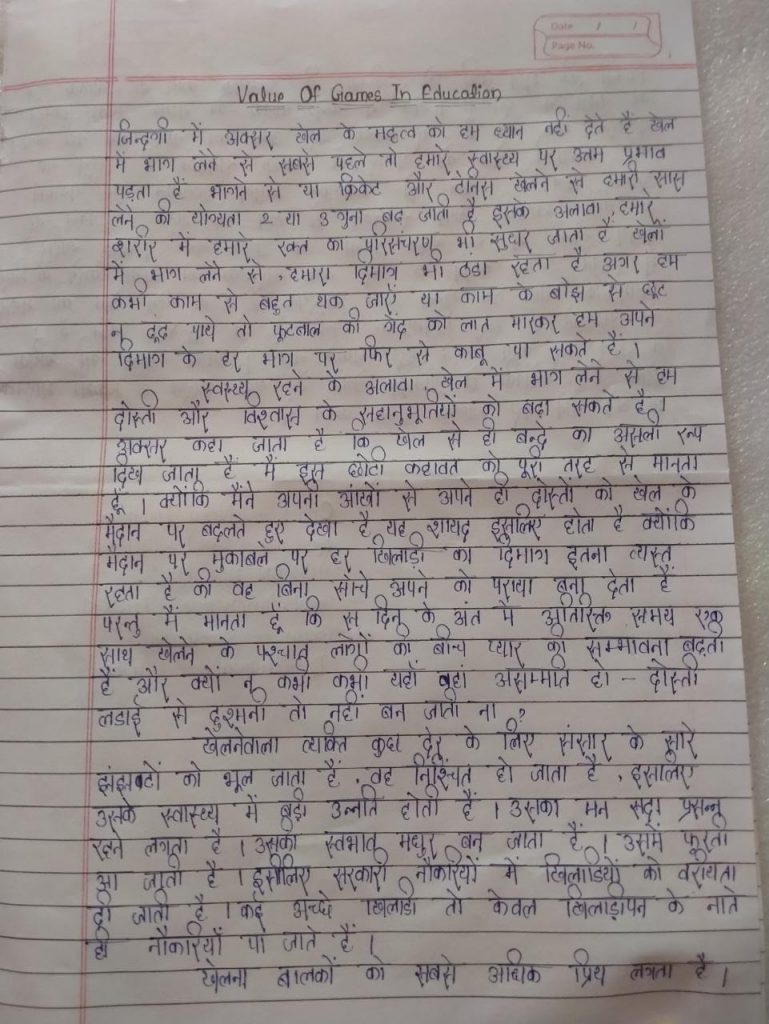 Date / /
Page No.
Value Of Games In Education
जिन्दगी में अक्सर खेल के महत्व को हम ध्यान नहीं देते है खेल
में भाग लेने से सबसे पहले तो हमारे स्वास्थ्य पर उत्तम प्रभाव
पड़ता हैं भागने से या क्रिकेट और टेनिस खेलने से हमारी सास
लेने की योग्यता 2 या 3 गुना बढ़ जाती है इसके अलावा हमारे
शरीर में हमारे रक्त का परिसंचरण भी सुधार जाता है खेलों
में भाग लेने से, हमारा दिमाग भी ठंडा रहता है अगर हम
कभी काम से बहुत थक जाएं या काम के बोझ से छूट
न ढूंढ पाये तो फूटबाल की गेंद को लात मारकर हम अपने
दिमाग के हर भाग पर फिर से काबू पा सकते हैं।
स्वस्थ्य रहने के अलावा, खेल में भाग लेने से हम
दोस्ती और विश्वास के सहानुभूतियों को बढ़ा सकते है।
अक्सर कहा जाता है कि खेल से ही बन्दे का असली रूप
दिख जाता है मैं इस छोटी कहावत को पूरी तरह से मानता
हूँ। क्योंकि मैंने अपनी आंखों से अपने ही दोस्तों को खेल के
मैदान पर बदलते हुए देखा है यह शायद इसलिए होता है क्योंकि
मैदान पर मुकाबले पर हर खिलाड़ी का दिमाग इतना व्यस्त
रहता है की वह बिना सोचे अपने को पराया बना देता है
परन्तु मैं मानता हूँ कि स दिन के अंत में अतिरिक्त समय एक
साथ खेलने के पश्चात लोगों का बीच प्यार की सम्भावना बढ़ती
हैं और क्यों न कभी कभी यहाँ वहां असम्मति हो - दोस्ती
लडाई से दुश्मनी तो नहीं बन जाती ना?
खेलनेवाला व्यक्ति कुछ देर के लिए संसार के सारे
झंझटों को भूल जाता हैं, वह निश्चिंत हो जाता है, इसलिए
उसके स्वास्थ्य में बड़ी उन्नति होती हैं। उसका मन सदा प्रसन्न
रहने लगता है। उसकी स्वभाव मधुर बन जाता हैं। उसमें फुरती
आ जाती है। इसीलिए सरकारी नौकरियों में खिलाडियों को वरीयता
दी जाती हैं। कई अच्छे खिलाडी तो केवल खिलाड़ीपन के नाते
ही नौकरियाँ पा जाते हैं।
खेलना बालकों को सबसे अधिक प्रिय लगता है।